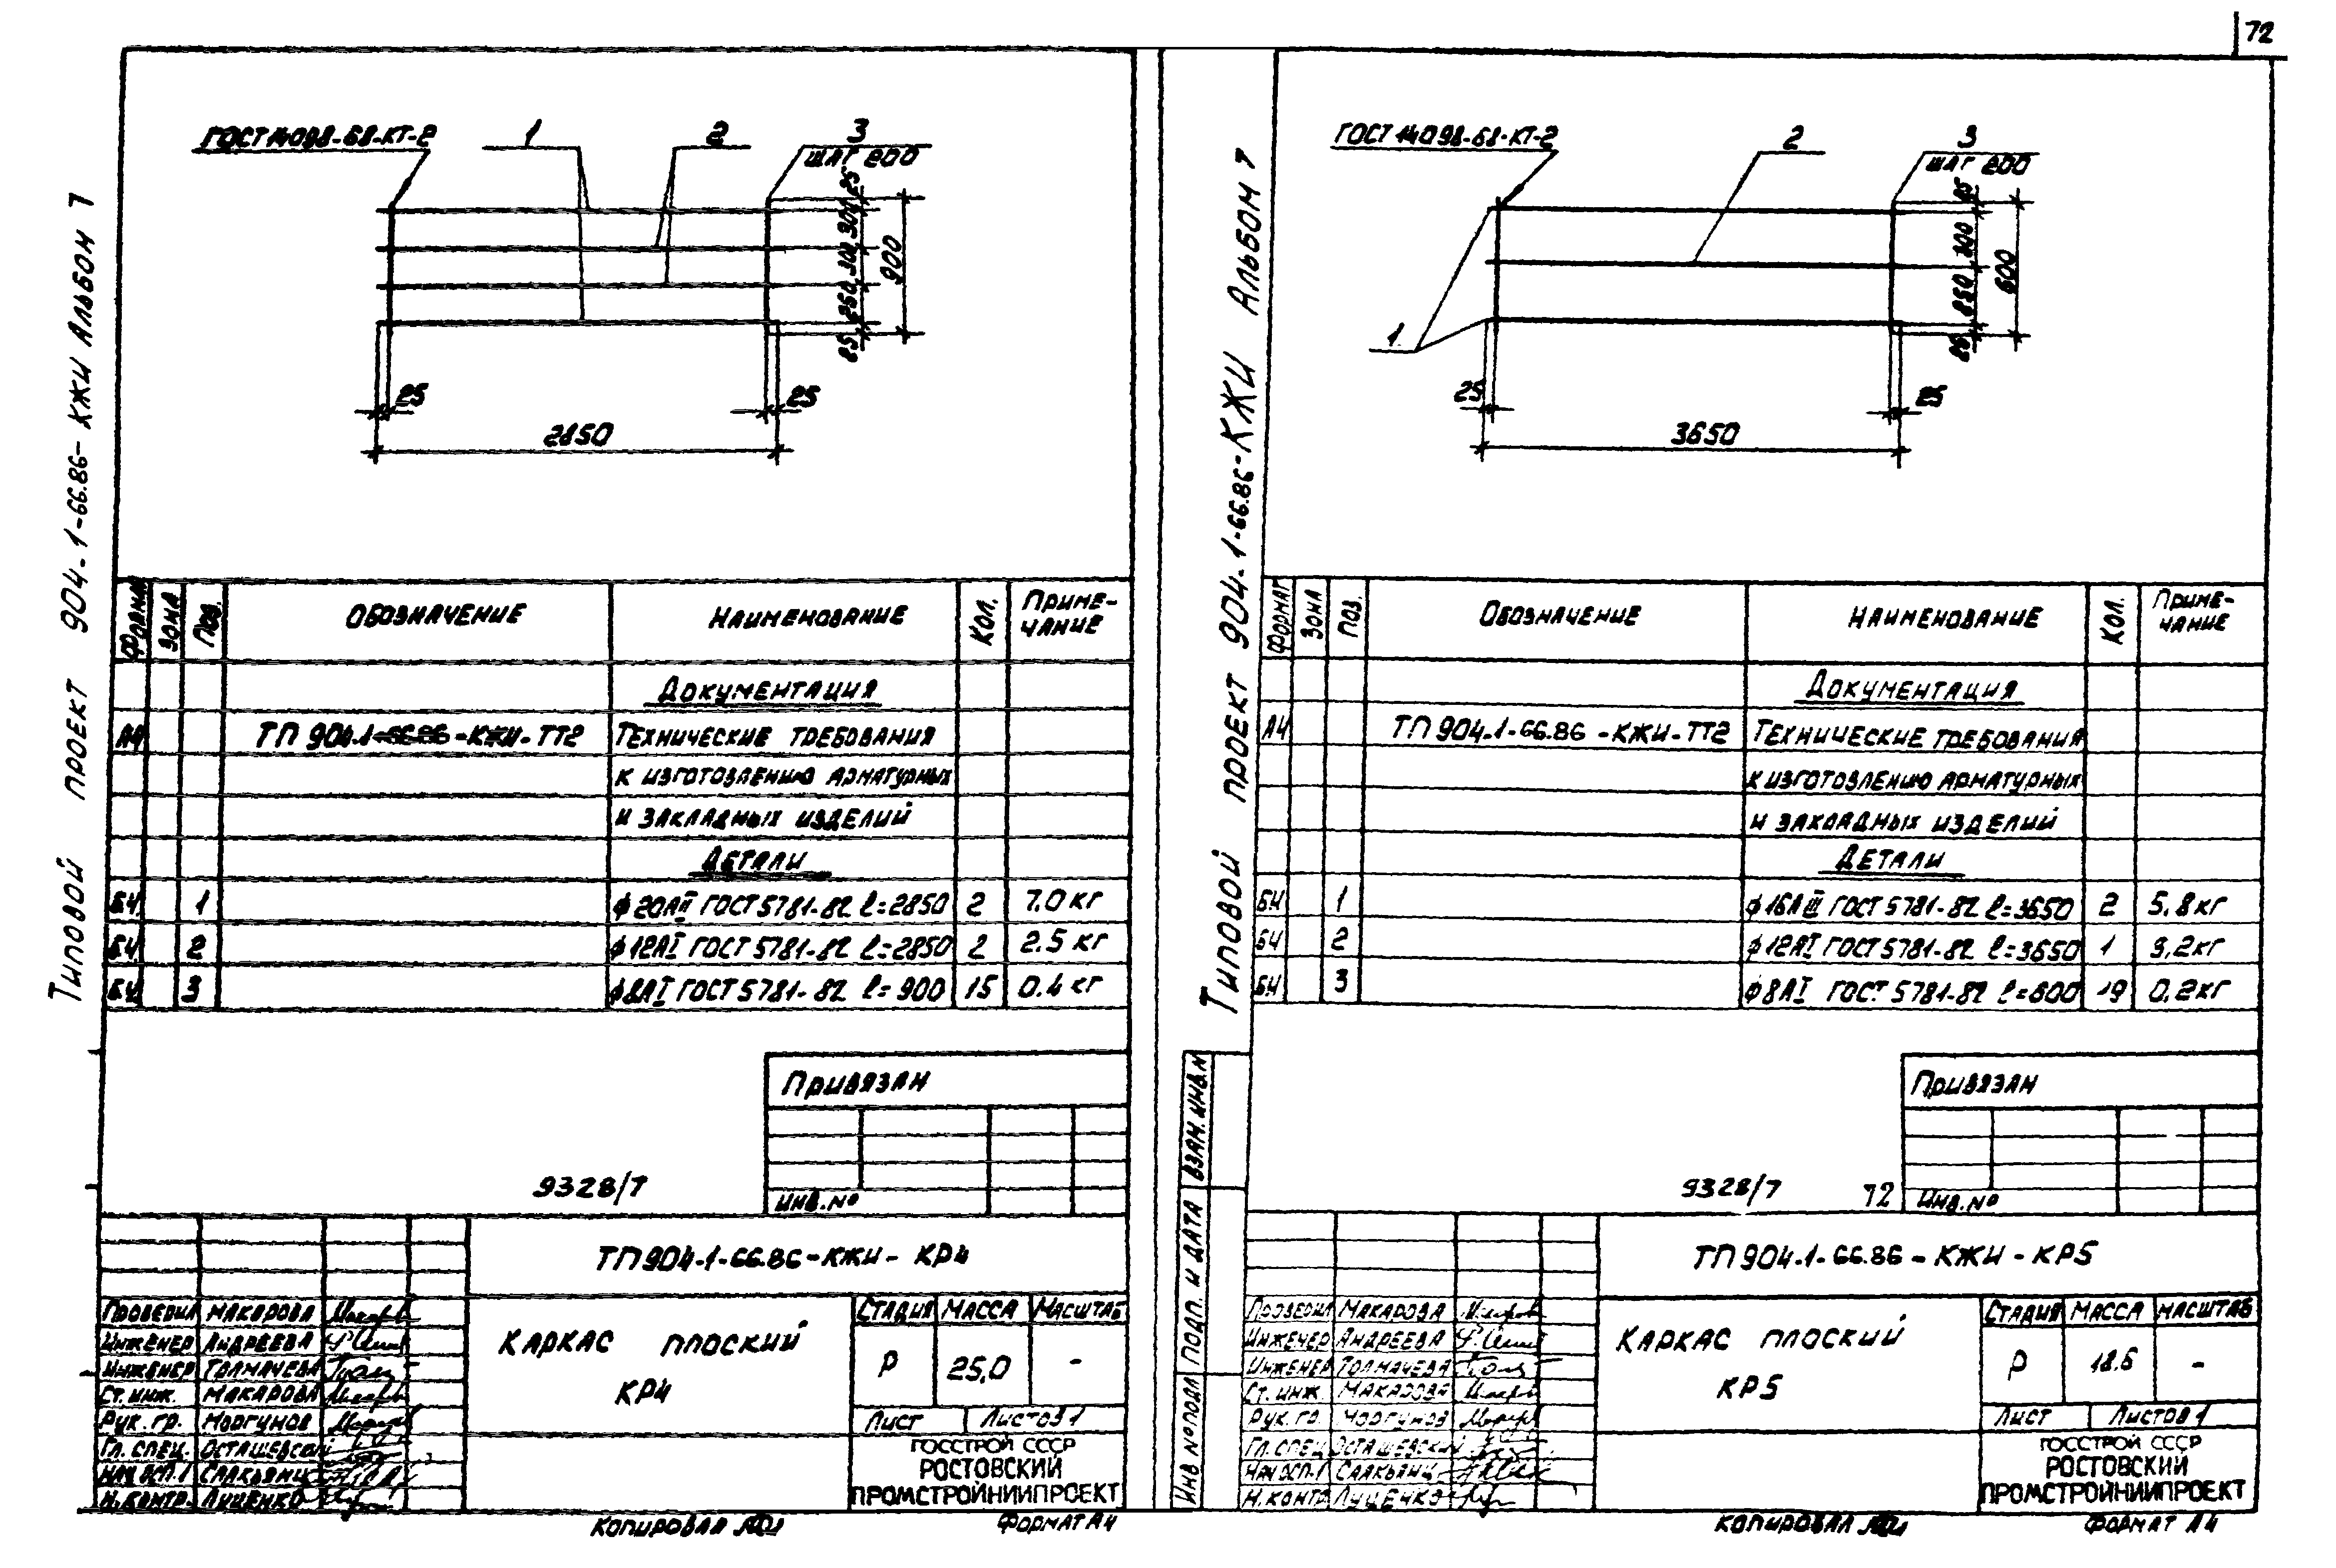 72
Типовой проект 904-1-66.86-КЖИ Альбом 7
ГОСТ 14098-68-КТ-2
1
2
3
ШАГ 200
25
300
300
250
25
900
25
25
2850
Формат
Зона
Поз.
Обозначение
Наименование
Кол.
Приме-
чание
Документация
А4 ТП 904-1-66.86-КЖИ-ТТ2 Технические требования
к изготовлению арматурных
и закладных изделий
Детали
БЧ 1 ф20АII ГОСТ 5781-82 ℓ=2850 2 7.0 кг
БЧ 2 ф12АI ГОСТ 5781-82 ℓ=2850 2 2.5 кг
БЧ 3 ф8АI ГОСТ 5781-82 ℓ=900 15 0.4 кг
Привязан
Инв.№
9328/7
ТП 904-1-66.86-КЖИ-КР4
Проверил Макарова
Инженер Андреева
Инженер Толмачева
Ст. инж. Макарова
Рук. гр. Моргунов
Гл. спец. Осташевский
Нач ОСП-1 Саакьянц
Н. контр. Луценко
Каркас плоский
КР4
Стадия Масса Масштаб
Р 25,0 -
Лист Листов 1
ГОССТРОЙ СССР
РОСТОВСКИЙ
ПРОМСТРОЙНИИПРОЕКТ
Копировал
Формат А4
Типовой проект 904-1-66.86-КЖИ Альбом 7
ГОСТ 14098-68-КТ-2
2
3
ШАГ 200
1
25
300
250
25
600
25
25
3650
Формат
Зона
Поз.
Обозначение
Наименование
Кол.
Приме-
чание
Документация
А4 ТП 904-1-66.86-КЖИ-ТТ2 Технические требования
к изготовлению арматурных
и закладных изделий
Детали
БЧ 1 ф16АIII ГОСТ 5781-82 ℓ=3650 2 5,8 кг
БЧ 2 ф12АI ГОСТ 5781-82 ℓ=3650 1 3,2 кг
БЧ 3 ф8АI ГОСТ 5781-82 ℓ=600 19 0,2 кг
Привязан
Инв.№
9328/7 72
Инв № подл Подп. и дата Взам. инв. №
ТП 904-1-66.86-КЖИ-КР5
Проверил Макарова
Инженер Андреева
Инженер Толмачева
Ст. инж. Макарова
Рук. гр. Моргунов
Гл. спец Осташевский
Нач ОСП-1 Саакьянц
Н. контр Луценко
Каркас плоский
КР5
Стадия Масса Масштаб
Р 18.6 -
Лист Листов 1
ГОССТРОЙ СССР
РОСТОВСКИЙ
ПРОМСТРОЙНИИПРОЕКТ
Копировал
Формат А4